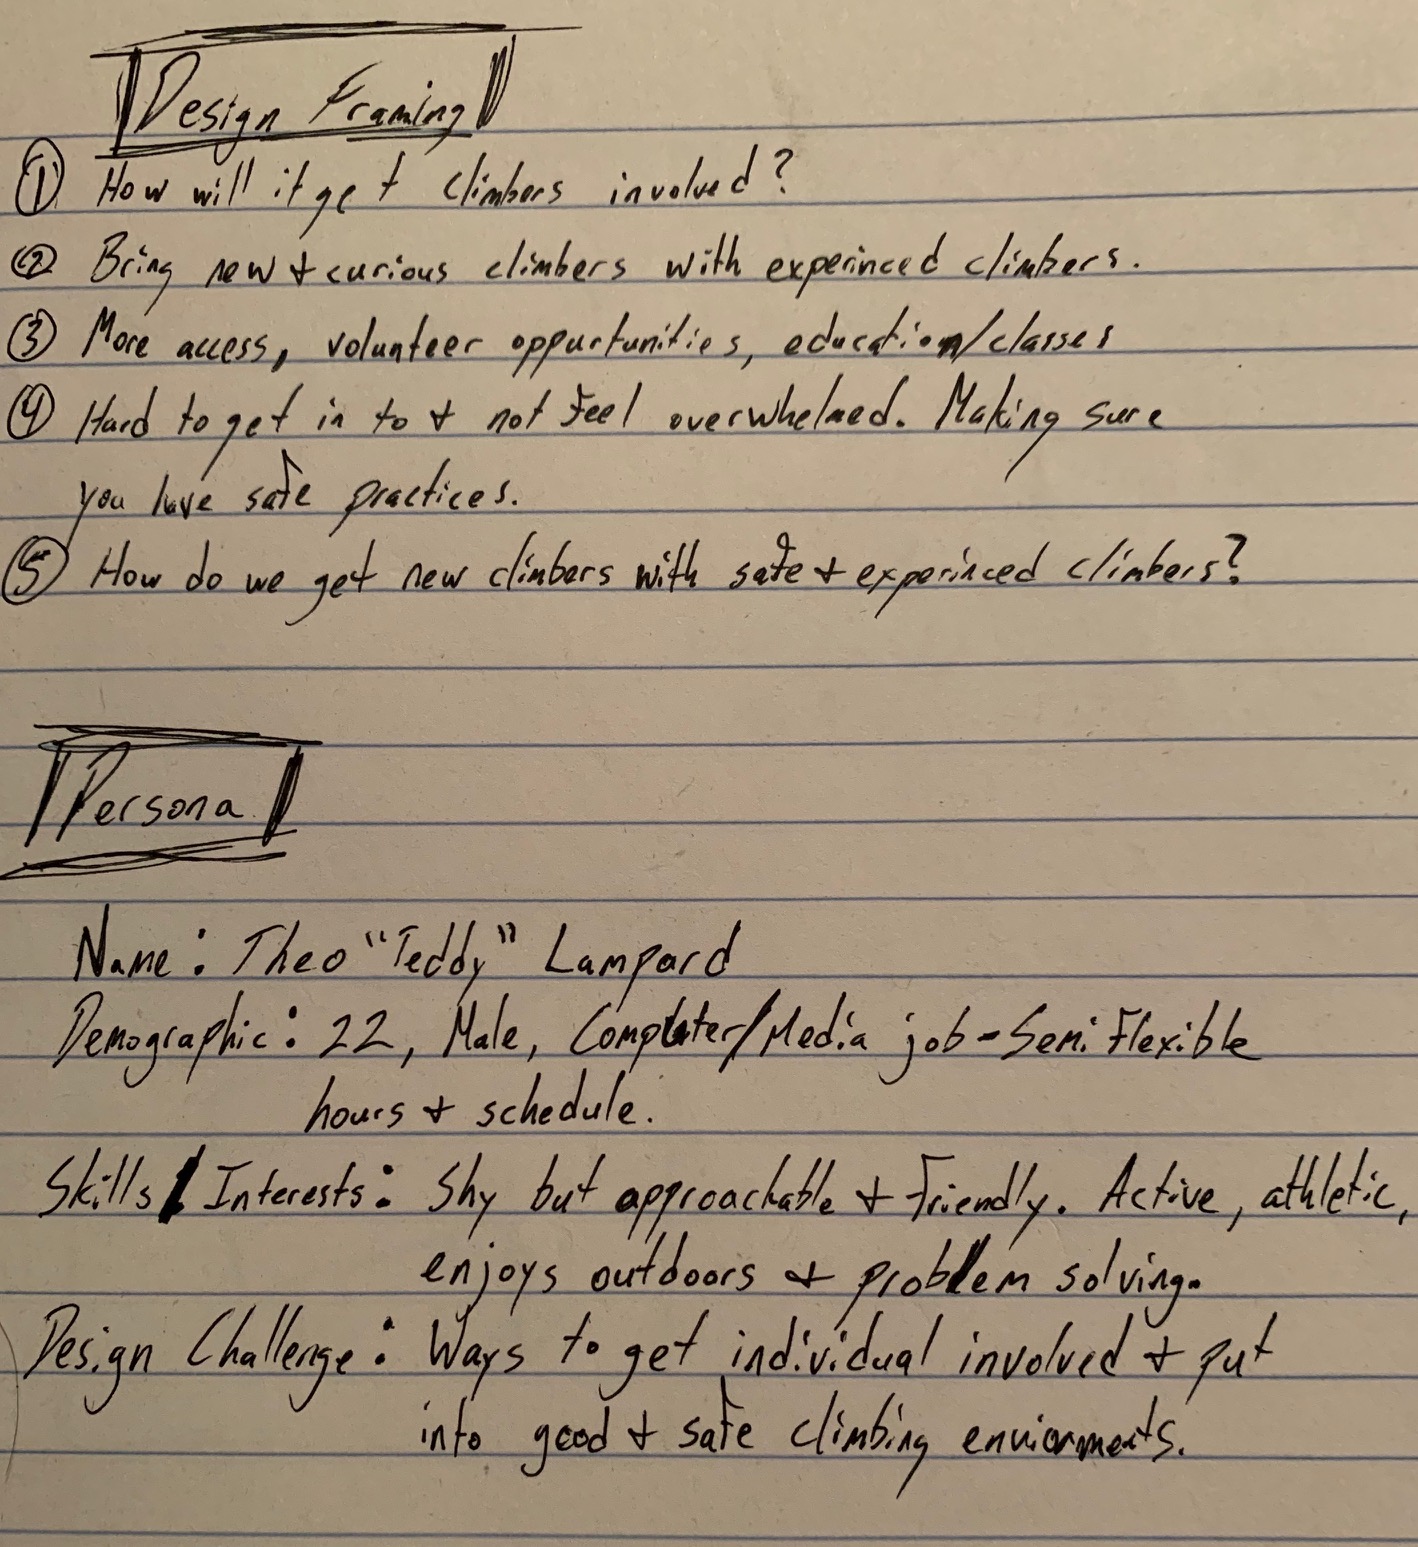 Design Framing
① How will it get climbers involved?
② Bring new + curious climbers with experinced climbers.
③ More access, volunteer oppurtunities, education/classes
④ Hard to get in to + not feel overwhelmed. Making sure
you have safe practices.
⑤ How do we get new climbers with safe + experinced climbers?
Persona
Name: Theo "Teddy" Lampard
Demographic: 22, Male, Computer/Media job - Semi flexible
hours + schedule.
Skills/Interests: Shy but approachable + friendly. Active, athletic,
enjoys outdoors + problem solving.
Design Challenge: Ways to get individual involved + put
into good + safe climbing enviorments.